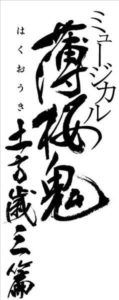 ミュージカル
薄桜鬼
はくおうき
土方歳三篇